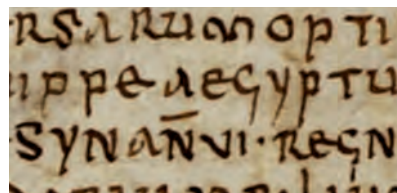 RSARUMOPTI
IPPEAEGYPTU
SYNANNVI·REGN